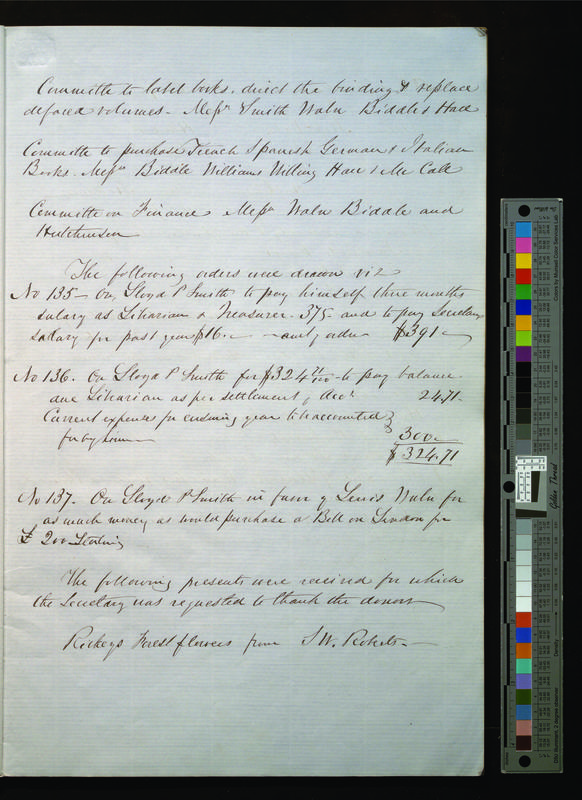 Committee to label books, direct the binding & replace
defaced volumes - Messrs Smith Waln Biddle & Hare
Committee to purchase French Spanish German & Italian
Books. Messrs Biddle Williams Willing Hare & Mc Call
Committee on Finance Messrs Waln Biddle and
Hutchinson
The following orders were drawn viz
No 135 - On Lloyd P Smith to pay himself three months
salary as Librarian & Treasurer. 375 - and to pay Secretary
salary for past year $16. - amt of order $391 -
No 136. On Lloyd P Smith for $324 71/100 - to pay balance
due Librarian as per settlement of Acct 24.71 -
Current expenses for ensuing year to be accounted
for by him 300 -
$324.71
No 137 - On Lloyd P Smith in favor of Lewis Waln for
as much money as would purchase a Bill on London for
£ 200 Sterling
The following presents were received for which
the Secretary was requested to thank the donors
Rickeys Forest flowers from S W. Roberts -